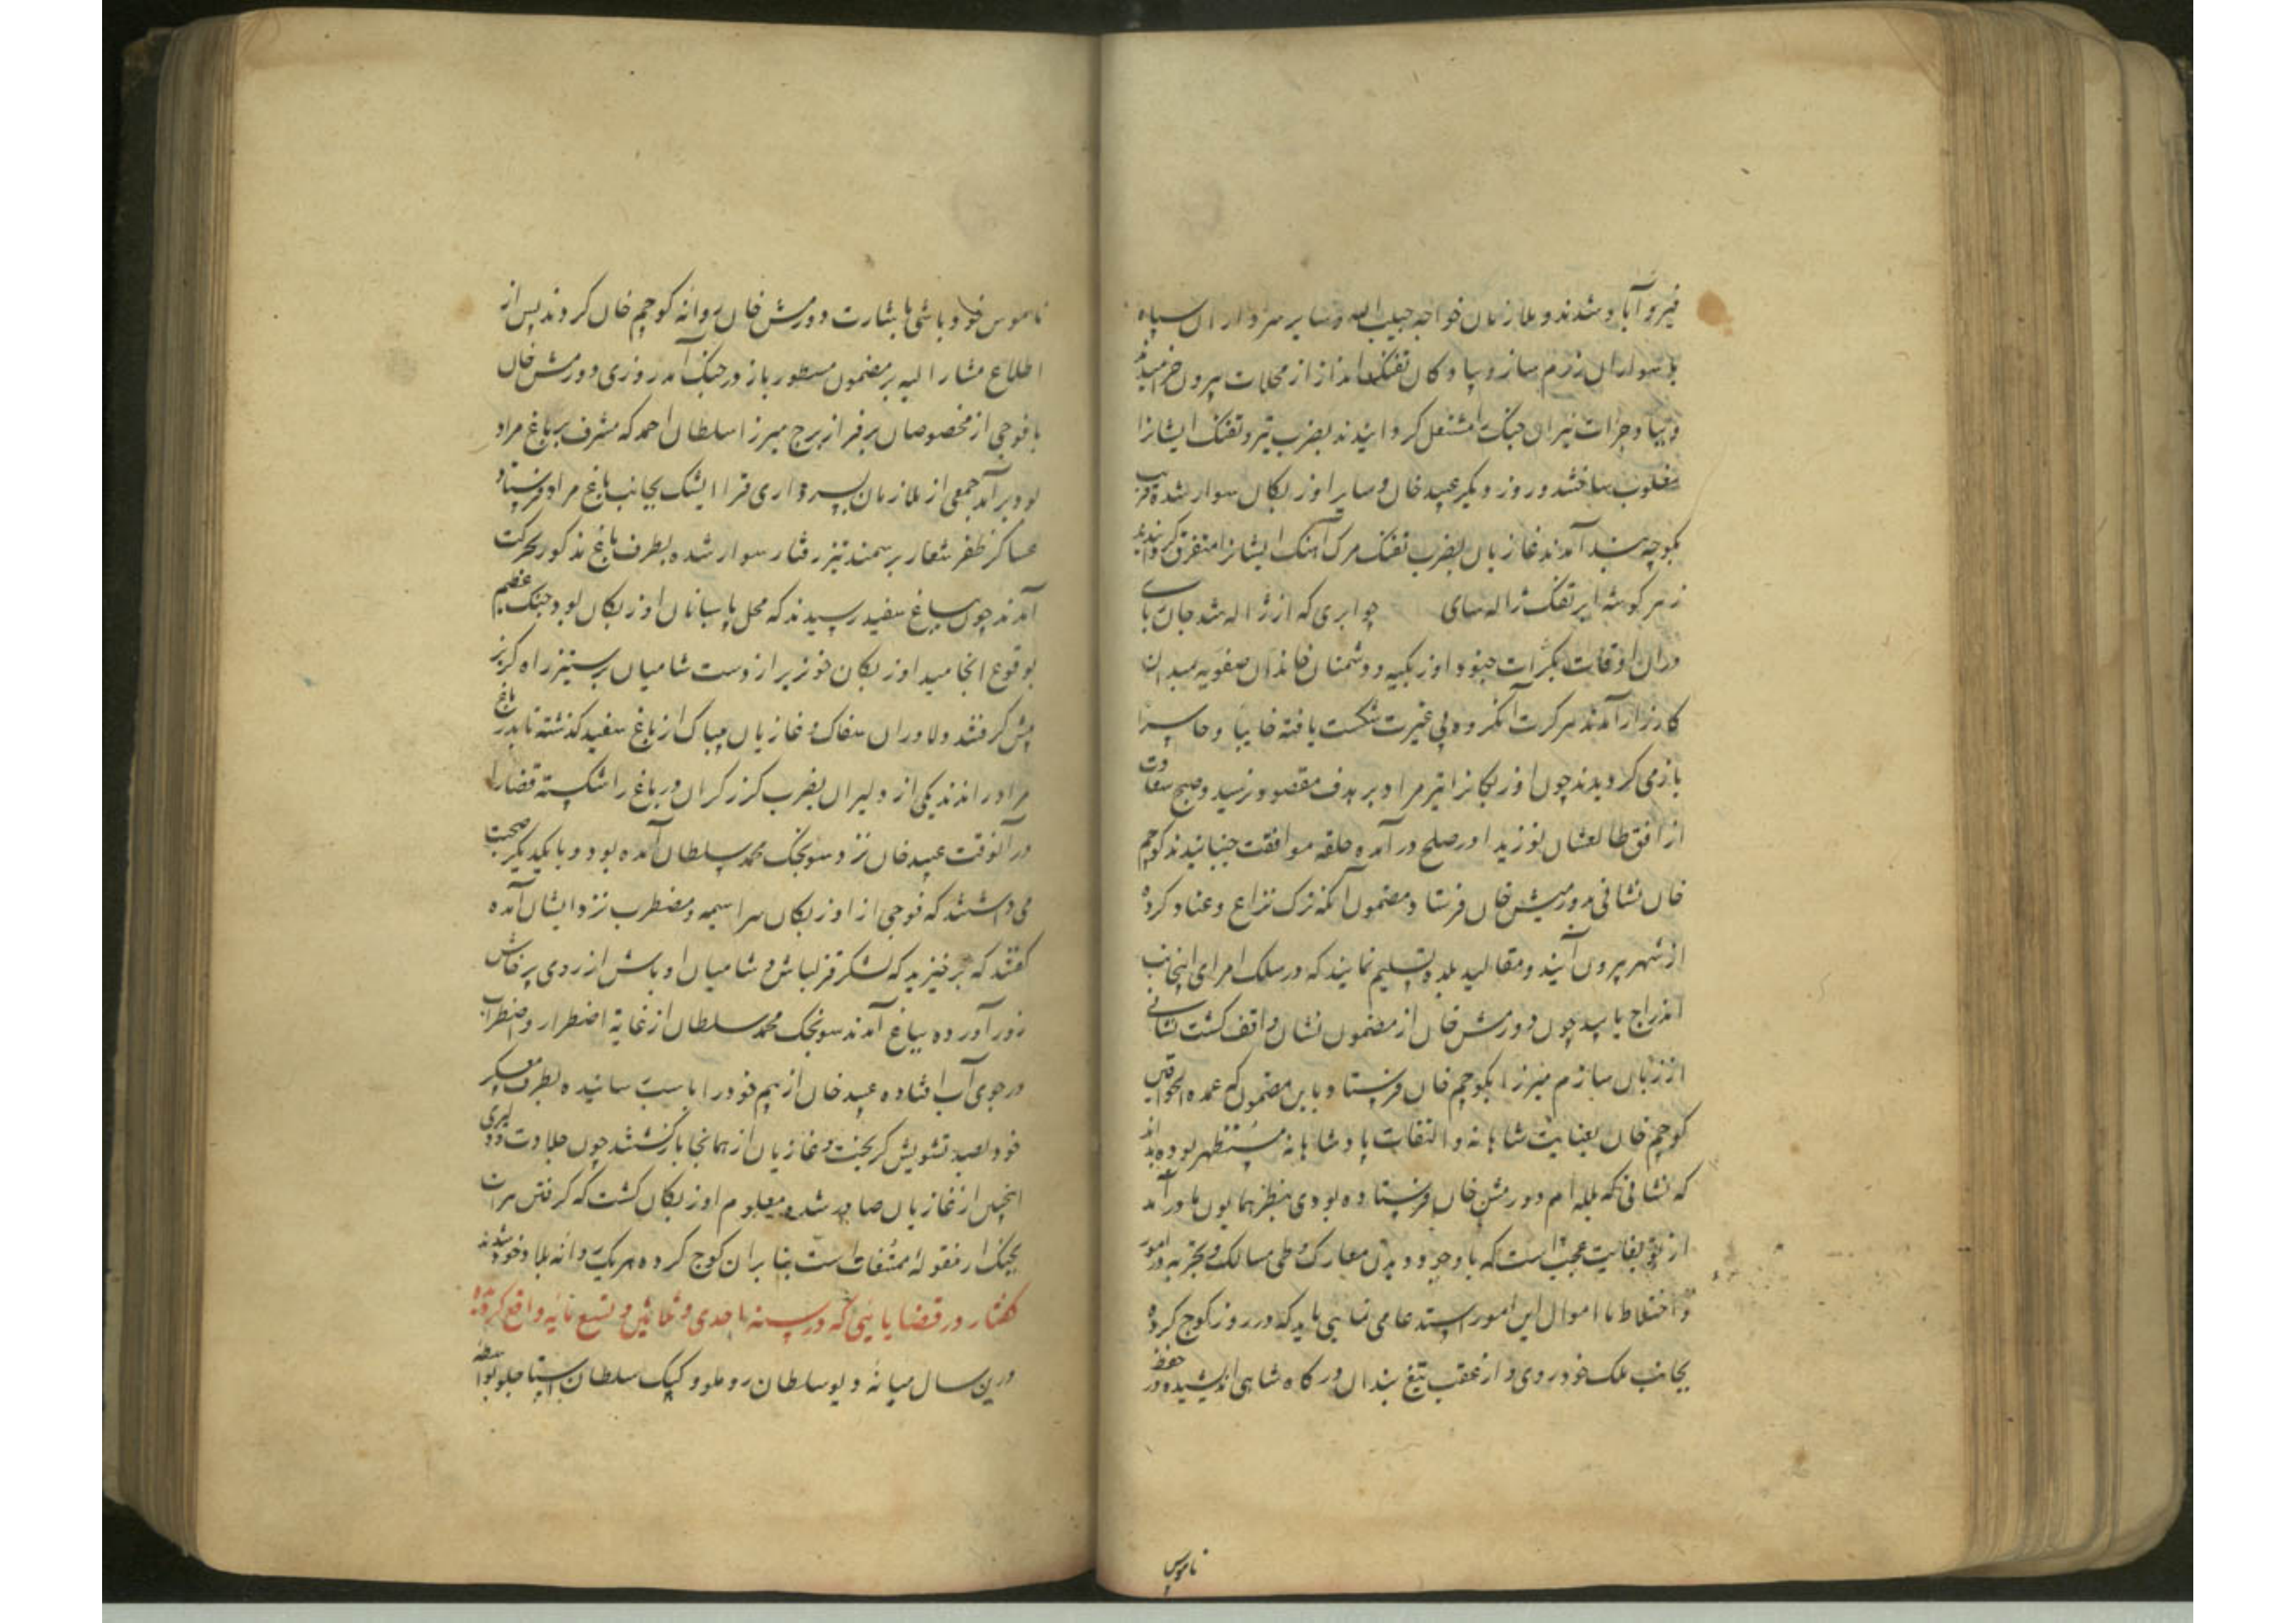 فیروزآباد شدند و ملازمان خواجه حبیب الله و سایر سرداران سپاه
با سواران رزم ساز و پیادگان تفنگ انداز از محلات بیرون خرامیدند
و جرات نیران جنگ مشتعل گردانیدند بضرب تیر و تفنگ ایشانرا
مغلوب ساختند و روز دیگر عبید خان و سایر اوزبکان سوار شده قریب
بکوچه بند آمدند غازیان بضرب تفنگ مرگ آهنگ ایشانرا متفرق گردانیدند
ز هر گوشه ابر تفنگ ژاله سای چو ابری که از ژاله شد جان ربای
دران اوقات بکرات جنود اوزبکیه و دشمنان خاندان صفویه بمیدان
کارزار آمدند هر کرت آن گروه بی غیرت شکست یافته خایبا و خاسرا
باز می کردیدند چون اوزبکانرا تیر مراد بر هدف مقصود نرسید و صبح سعادت
از افق طالعشان نوزید از در صلح در آمده حلقه موافقت جنبانیدند کوچم
خان نشانی بدورمیش خان فرستاد مضمون آنکه ترک نزاع و عناد کرده
از شهر بیرون آیند و مقالید بلده تسلیم نمایند که در سلک امرای اینجانب
اندراج یابید چون دورمش خان از مضمون نشان واقف کشت نشانی
از زبان سام میرزا بکوچم خان فرستاد باین مضمون که عمده الخواقین
کوچم خان بعنایت شاهانه و التفات پادشاهانه مستظهر بوده بداند
که نشانی که بلله ام دورمش خان فرستاده بودی بنظر همایون ما در آمد
از تو بغایت عجبست که با وجود دیدن معارک و طی مسالک و تجربه در امور
و اختلاط با اموال این امور استدعا می نمایی باید که در روز کوچ کرده
بجانب ملک خود روی و از عقب تیغ بندان درگاه شاهی اندیشیده در حفظ
ناموس
ناموس خود باشی با بشارت دورمش خان روانه کوچم خان کردند پس از
اطلاع مشار الیه بر مضمون مسطور باز در جنگ آمد روزی دورمش خان
با فوجی از مخصوصان بر فراز برج میرزا سلطان احمد که مشرف بر باغ مراد
بود برآمد جمعی از ملازمان بسرداری قرا ایشک بجانب باغ مراد فرستاد
عساکر ظفر شعار بر سمند تیز رفتار سوار شده بطرف باغ مذکور بحرکت
آمدند چون بباغ سفید رسیدند که محل پاسبانان اوزبکان بود جنگ عظیم
بوقوع انجامید اوزبکان خونریز از دست شامیان پر ستیز راه کریز
پیش کرفتند دلاوران سفاک و غازیان بیباک از باغ سفید کذشته تا بدر باغ
مراد راندند یکی از دلیران بضرب کرز کران در باغ را شکسته قضا را
در آنوقت عبید خان نزد سونجک محمد سلطان آمده بود و با یکدیگر صحبت
می داشتند که فوجی از اوزبکان سراسیمه و مضطرب نزد ایشان آمده
کفتند که برخیزید که لشکر قزلباش و شامیان اوباش از روی پرخاش
زور آورده بباغ آمدند سونجک محمد سلطان از غایة اضطرار و اضطراب
در جوی آب افتاده عبید خان از بیم خود را با سب رسانیده بطرف معسکر
خود بصد تشویش کریخت و غازیان از همانجا بازکشتند چون جلادت و دلیری
اینچنین از غازیان صادر شد معلوم اوزبکان کشت که کرفتن هرات
بجنگ از مقوله ممتنعات است بنا بران کوچ کرده هر یک روانه بلاد خود شدند
کفتار در قضایایی که در سنه احدی و ثلاثین و تسع مائه واقع کردیده
درین سال میانه دیو سلطان روملو و کپک سلطان استاجلو بواسطه